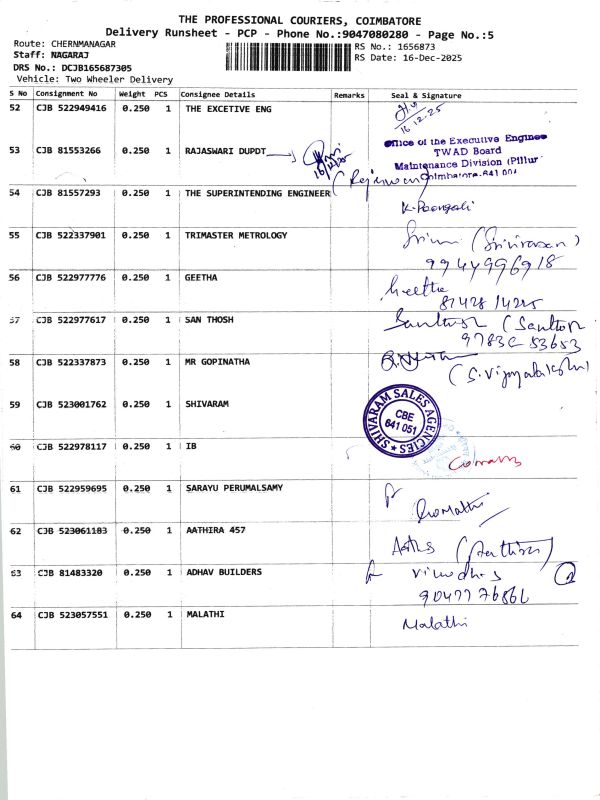 THE PROFESSIONAL COURIERS, COIMBATORE
Delivery Runsheet - PCP - Phone No.:9047080280 - Page No.:5
Route: CHERNMANAGAR
RS No.: 1656873
Staff: NAGARAJ
RS Date: 16-Dec-2025
DRS No.: DCJB165687305
Vehicle: Two Wheeler Delivery
S No Consignment No Weight PCS Consignee Details Remarks Seal & Signature
52 CJB 522949416 0.250 1 THE EXCETIVE ENG
16-12-25
Office of the Executive Engineer
53 CJB 81553266 0.250 1 RAJASWARI DUPDT
TWAD Board
Maintenance Division (Pillur
Coimbatore-641 001
54 CJB 81557293 0.250 1 THE SUPERINTENDING ENGINEER
K. Poongali
55 CJB 522337901 0.250 1 TRIMASTER METROLOGY
(Srinivasan)
9944996918
56 CJB 522977776 0.250 1 GEETHA
Geetha
57 CJB 522977617 0.250 1 SAN THOSH
Santhosh (Santhosh
58 CJB 522337873 0.250 1 MR GOPINATHA
(S. Vijayalakshmi)
59 CJB 523001762 0.250 1 SHIVARAM
SHIVARAM SALES AGENCIES
CBE
641 051
60 CJB 522978117 0.250 1 IB
61 CJB 522959695 0.250 1 SARAYU PERUMALSAMY
Gomathi
62 CJB 523061183 0.250 1 AATHIRA 457
63 CJB 81483320 0.250 1 ADHAV BUILDERS
64 CJB 523057551 0.250 1 MALATHI
Malathi